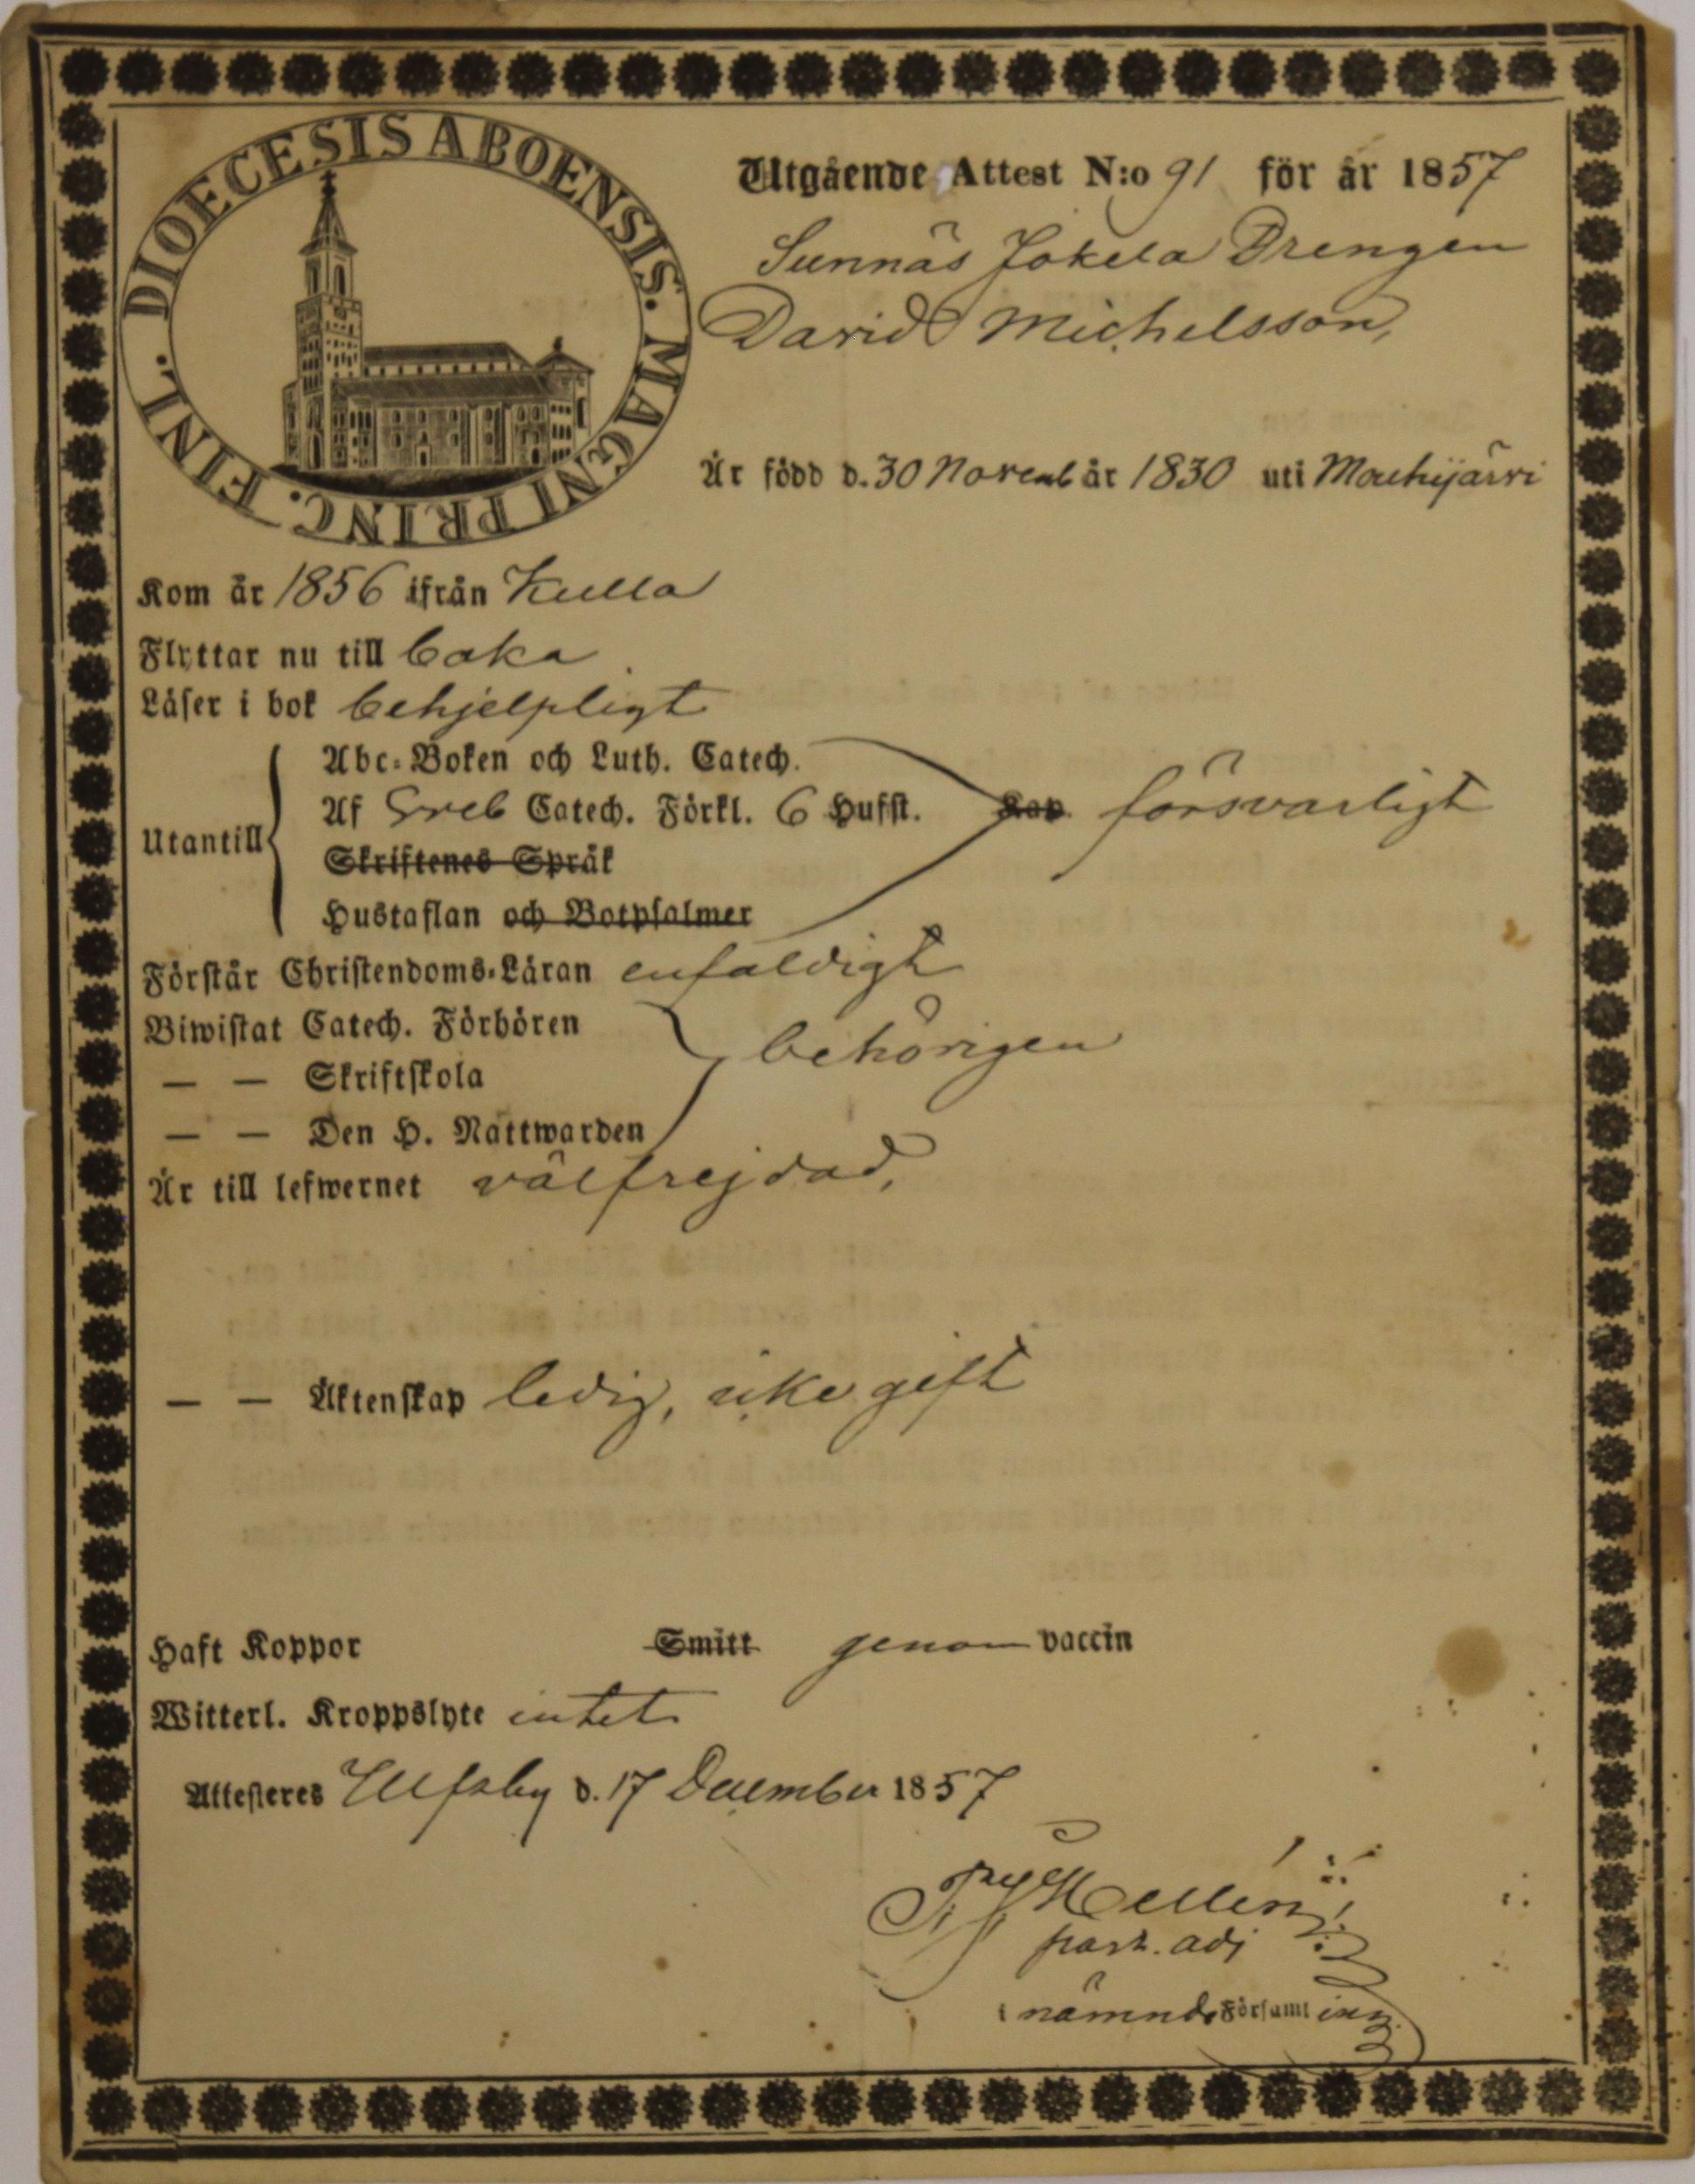 DIOECESIS ABOENSIS. MAGNI PRINC. FINL.
Utgående Attest N:o 91 för år 1857
Sunnäs Jokela Drengen
David Michelsson,
Är född d. 30 Novemb år 1830 uti Mouhijärvi
Kom år 1856 ifrån Kulla
Flyttar nu till Caka
Läser i bok behjelpligt
Abc-Boken och Luth. Catech.
Utantill Af Sveb Catech. Förkl. 6 Hufst. Kap. försvarligt
Skriftenes Språk
Hustaflan och Botpsalmer
Förstår Christendoms-Läran enfaldigt
Biwistat Catech. Förhören
behörigen
— — Skriftskola
— — Den H. Nattwarden
Är till lefwernet välfrejdad,
— — Äktenskap ledig, icke gift
Haft Koppor Smitt genom vaccin
Witterl. Kroppslyte intet
Attesteres Ulfsby d. 17 December 1857
Hellén
past. adj
i nämnde Församling.